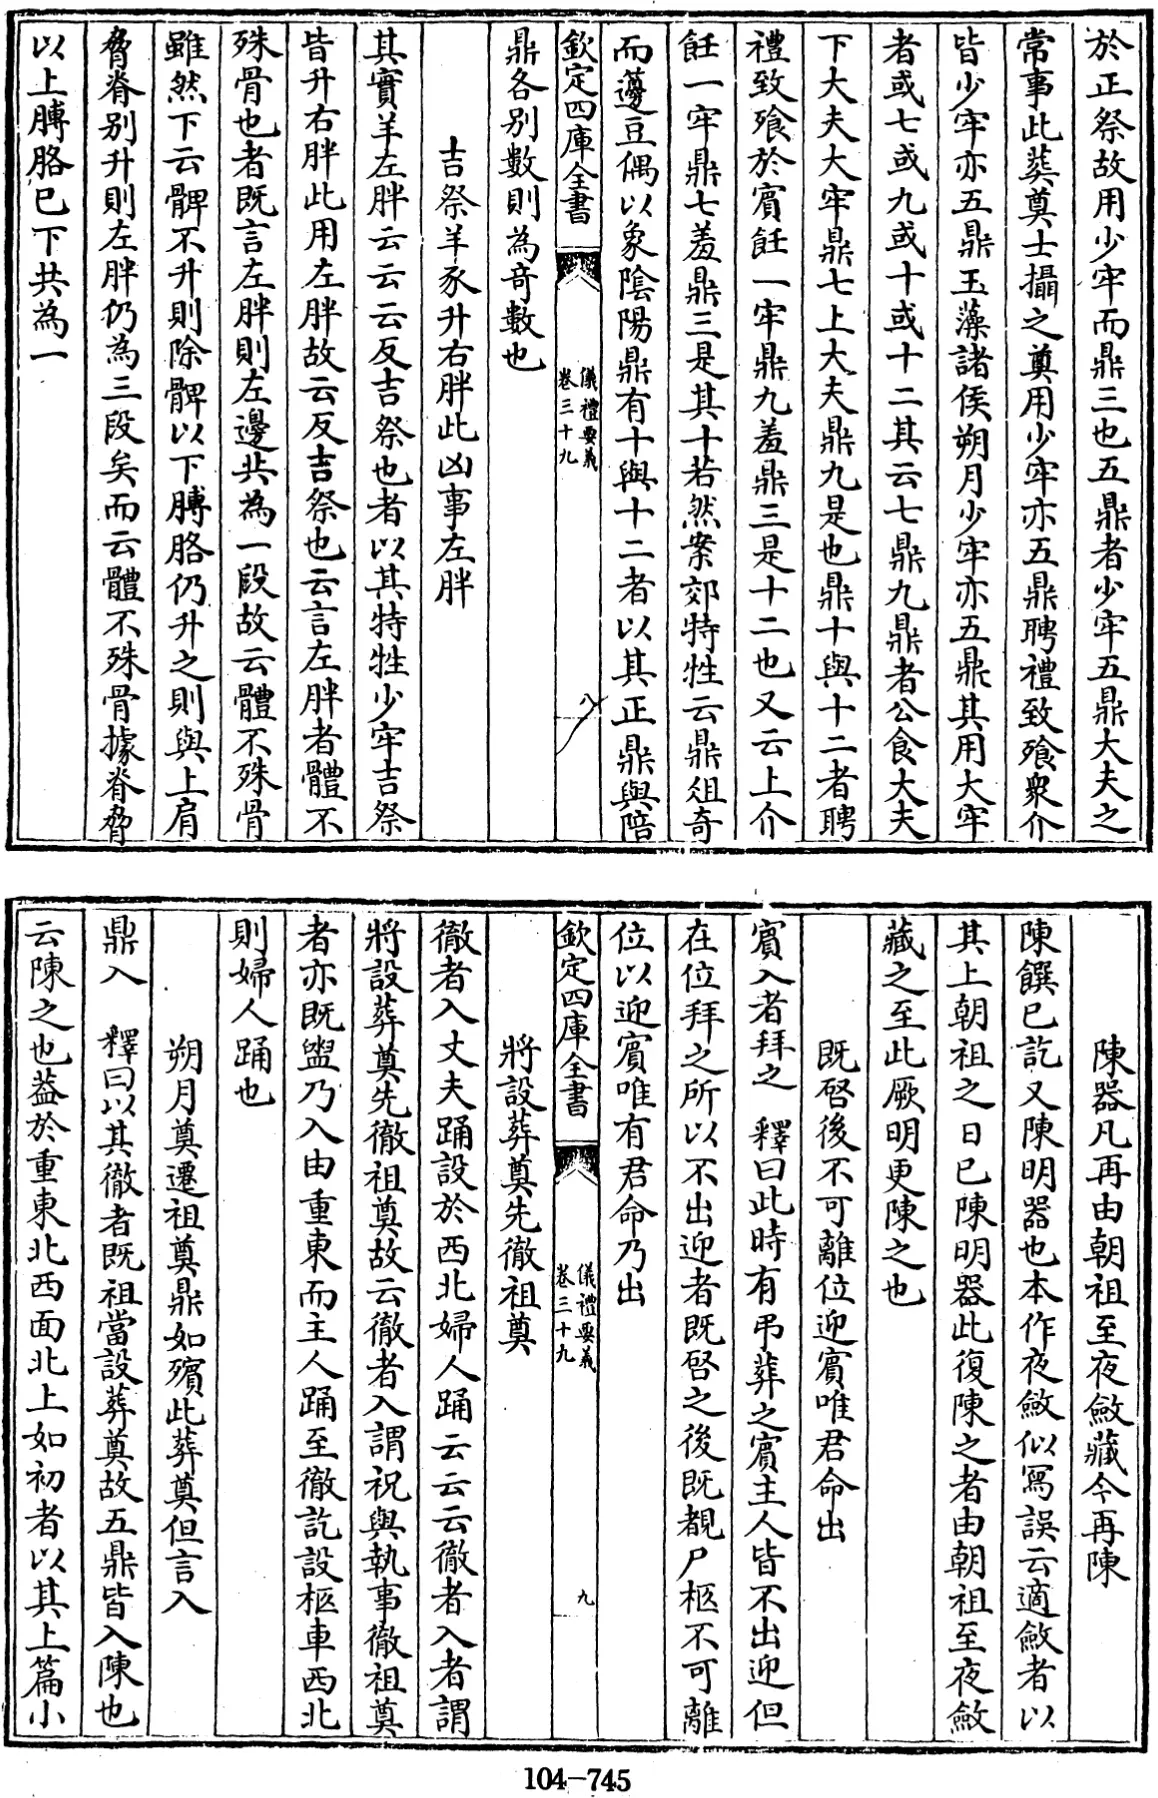 於正祭故用少牢而鼎三也五鼎者少牢五鼎大夫之
常事此葬奠士攝之奠用少牢亦五鼎聘禮致飱衆介
皆少牢亦五鼎玉藻諸侯朔月少牢亦五鼎其用大牢
者或七或九或十或十二其云七鼎九鼎者公食大夫
下大夫大牢鼎七上大夫鼎九是也鼎十與十二者聘
禮致飱於賓飪一牢鼎九羞鼎三是十二也又云上介
飪一牢鼎七羞鼎三是其十若然案郊特牲云鼎俎奇
而籩豆偶以象陰陽鼎有十與十二者以其正鼎與陪
欽定四庫全書
儀禮要義
卷三十九
八
鼎各别數則為奇數也
吉祭羊豕升右胖此凶事左胖
其實羊左胖云云云反吉祭也者以其特牲少牢吉祭
皆升右胖此用左胖故云反吉祭也云言左胖者體不
殊骨也者既言左胖則左邊共為一段故云體不殊骨
雖然下云髀不升則除髀以下膊胳仍升之則與上肩
脅脊别升則左胖仍為三段矣而云體不殊骨據脊脅
以上膊胳已下共為一
陳器凡再由朝祖至夜斂藏今再陳
陳饌已訖又陳明器也本作夜斂似寫誤云適斂者以
其上朝祖之日已陳明器此復陳之者由朝祖至夜斂
藏之至此厥明更陳之也
既啓後不可離位迎賓唯君命出
賓入者拜之　釋曰此時有弔葬之賓主人皆不出迎但
在位拜之所以不出迎者既啓之後既覩尸柩不可離
位以迎賓唯有君命乃出
欽定四庫全書
儀禮要義
卷三十九
九
將設葬奠先徹祖奠
徹者入丈夫踊設於西北婦人踊云云云徹者入者謂
將設葬奠先徹祖奠故云徹者入謂祝與執事徹祖奠
者亦既盥乃入由重東而主人踊至徹訖設柩車西北
則婦人踊也
朔月奠遷祖奠鼎如殯此葬奠但言入
鼎入　釋曰以其徹者既祖當設葬奠故五鼎皆入陳也
云陳之也葢於重東北西面北上如初者以其上篇小
104-745